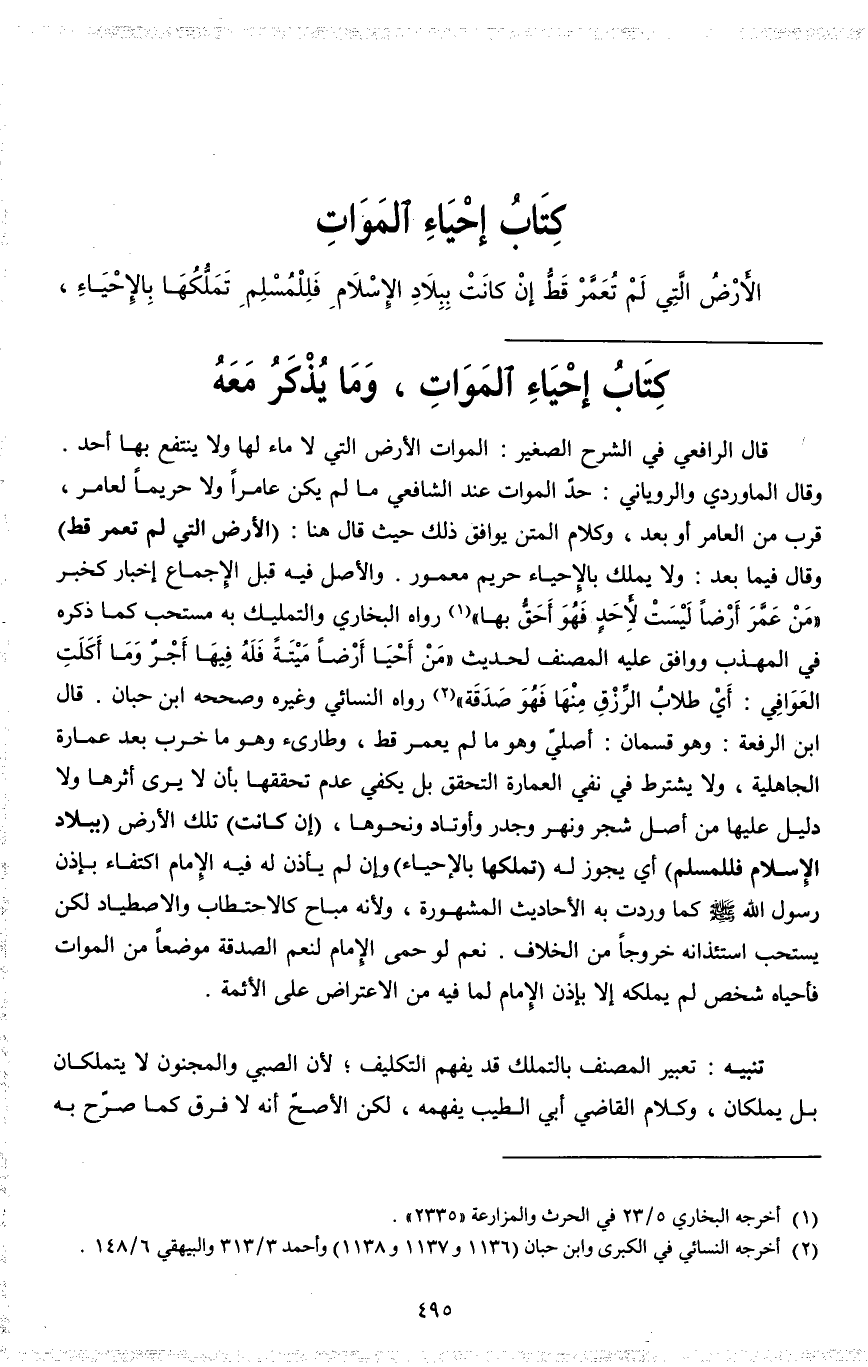 كِتَابُ إِحْيَاءِ ٱلمَوَاتِ
الأَرْضُ الَّتِي لَمْ تُعَمَّرْ قَطُّ إِنْ كانَتْ بِبِلَادِ الإِسْلَامِ فَلِلْمُسْلِمِ تَمَلُّكُهَا بِالإِحْيَاءِ ،
كِتَابُ إِحْيَاءِ ٱلمَوَاتِ ، وَمَا يُذْكَرُ مَعَهُ
قال الرافعي في الشرح الصغير : الموات الأرض التي لا ماء لها ولا ينتفع بها أحد .
وقال الماوردي والروياني : حدّ الموات عند الشافعي ما لم يكن عامراً ولا حريماً لعامر ،
قرب من العامر أو بعد ، وكلام المتن يوافق ذلك حيث قال هنا : (الأرض التي لم تعمر قط)
وقال فيما بعد : ولا يملك بالإحياء حريم معمور . والأصل فيه قبل الإجماع إخبار كخبر
«مَنْ عَمَّرَ أَرْضاً لَيْسَتْ لأَحَدٍ فَهُوَ أَحَقُّ بها»(١) رواه البخاري والتمليك به مستحب كما ذكره
في المهذب ووافق عليه المصنف لحديث «مَنْ أَحْيَا أَرْضاً مَيْتَةً فَلَهُ فِيهَا أَجْرٌ وَمَا أَكَلَتِ
العَوَافِي : أَيْ طلابُ الرِّزْقِ مِنْهَا فَهُوَ صَدَقَة»(٢) رواه النسائي وغيره وصححه ابن حبان . قال
ابن الرفعة : وهو قسمان : أصليّ وهو ما لم يعمر قط ، وطارىء وهو ما خرب بعد عمارة
الجاهلية ، ولا يشترط في نفي العمارة التحقق بل يكفي عدم تحققها بأن لا يرى أثرها ولا
دليل عليها من أصل شجر ونهر وجدر وأوتاد ونحوها ، (إن كانت) تلك الأرض (ببلاد
الإسلام فللمسلم) أي يجوز له (تملكها بالإحياء) وإن لم يأذن له فيه الإمام اكتفاء بإذن
رسول الله ﷺ كما وردت به الأحاديث المشهورة ، ولأنه مباح كالاحتطاب والاصطياد لكن
يستحب استئذانه خروجاً من الخلاف . نعم لو حمى الإمام لنعم الصدقة موضعاً من الموات
فأحياه شخص لم يملكه إلا بإذن الإمام لما فيه من الاعتراض على الأئمة .
تنبيه : تعبير المصنف بالتملك قد يفهم التكليف ؛ لأن الصبي والمجنون لا يتملكان
بل يملكان ، وكلام القاضي أبي الطيب يفهمه ، لكن الأصحّ أنه لا فرق كما صرّح به
(١) أخرجه البخاري ٢٣/٥ في الحرث والمزارعة «٢٣٣٥» .
(٢) أخرجه النسائي في الكبرى وابن حبان (١١٣٦ و١١٣٧ و١١٣٨) وأحمد ٣١٣/٣ والبيهقي ١٤٨/٦ .
٤٩٥